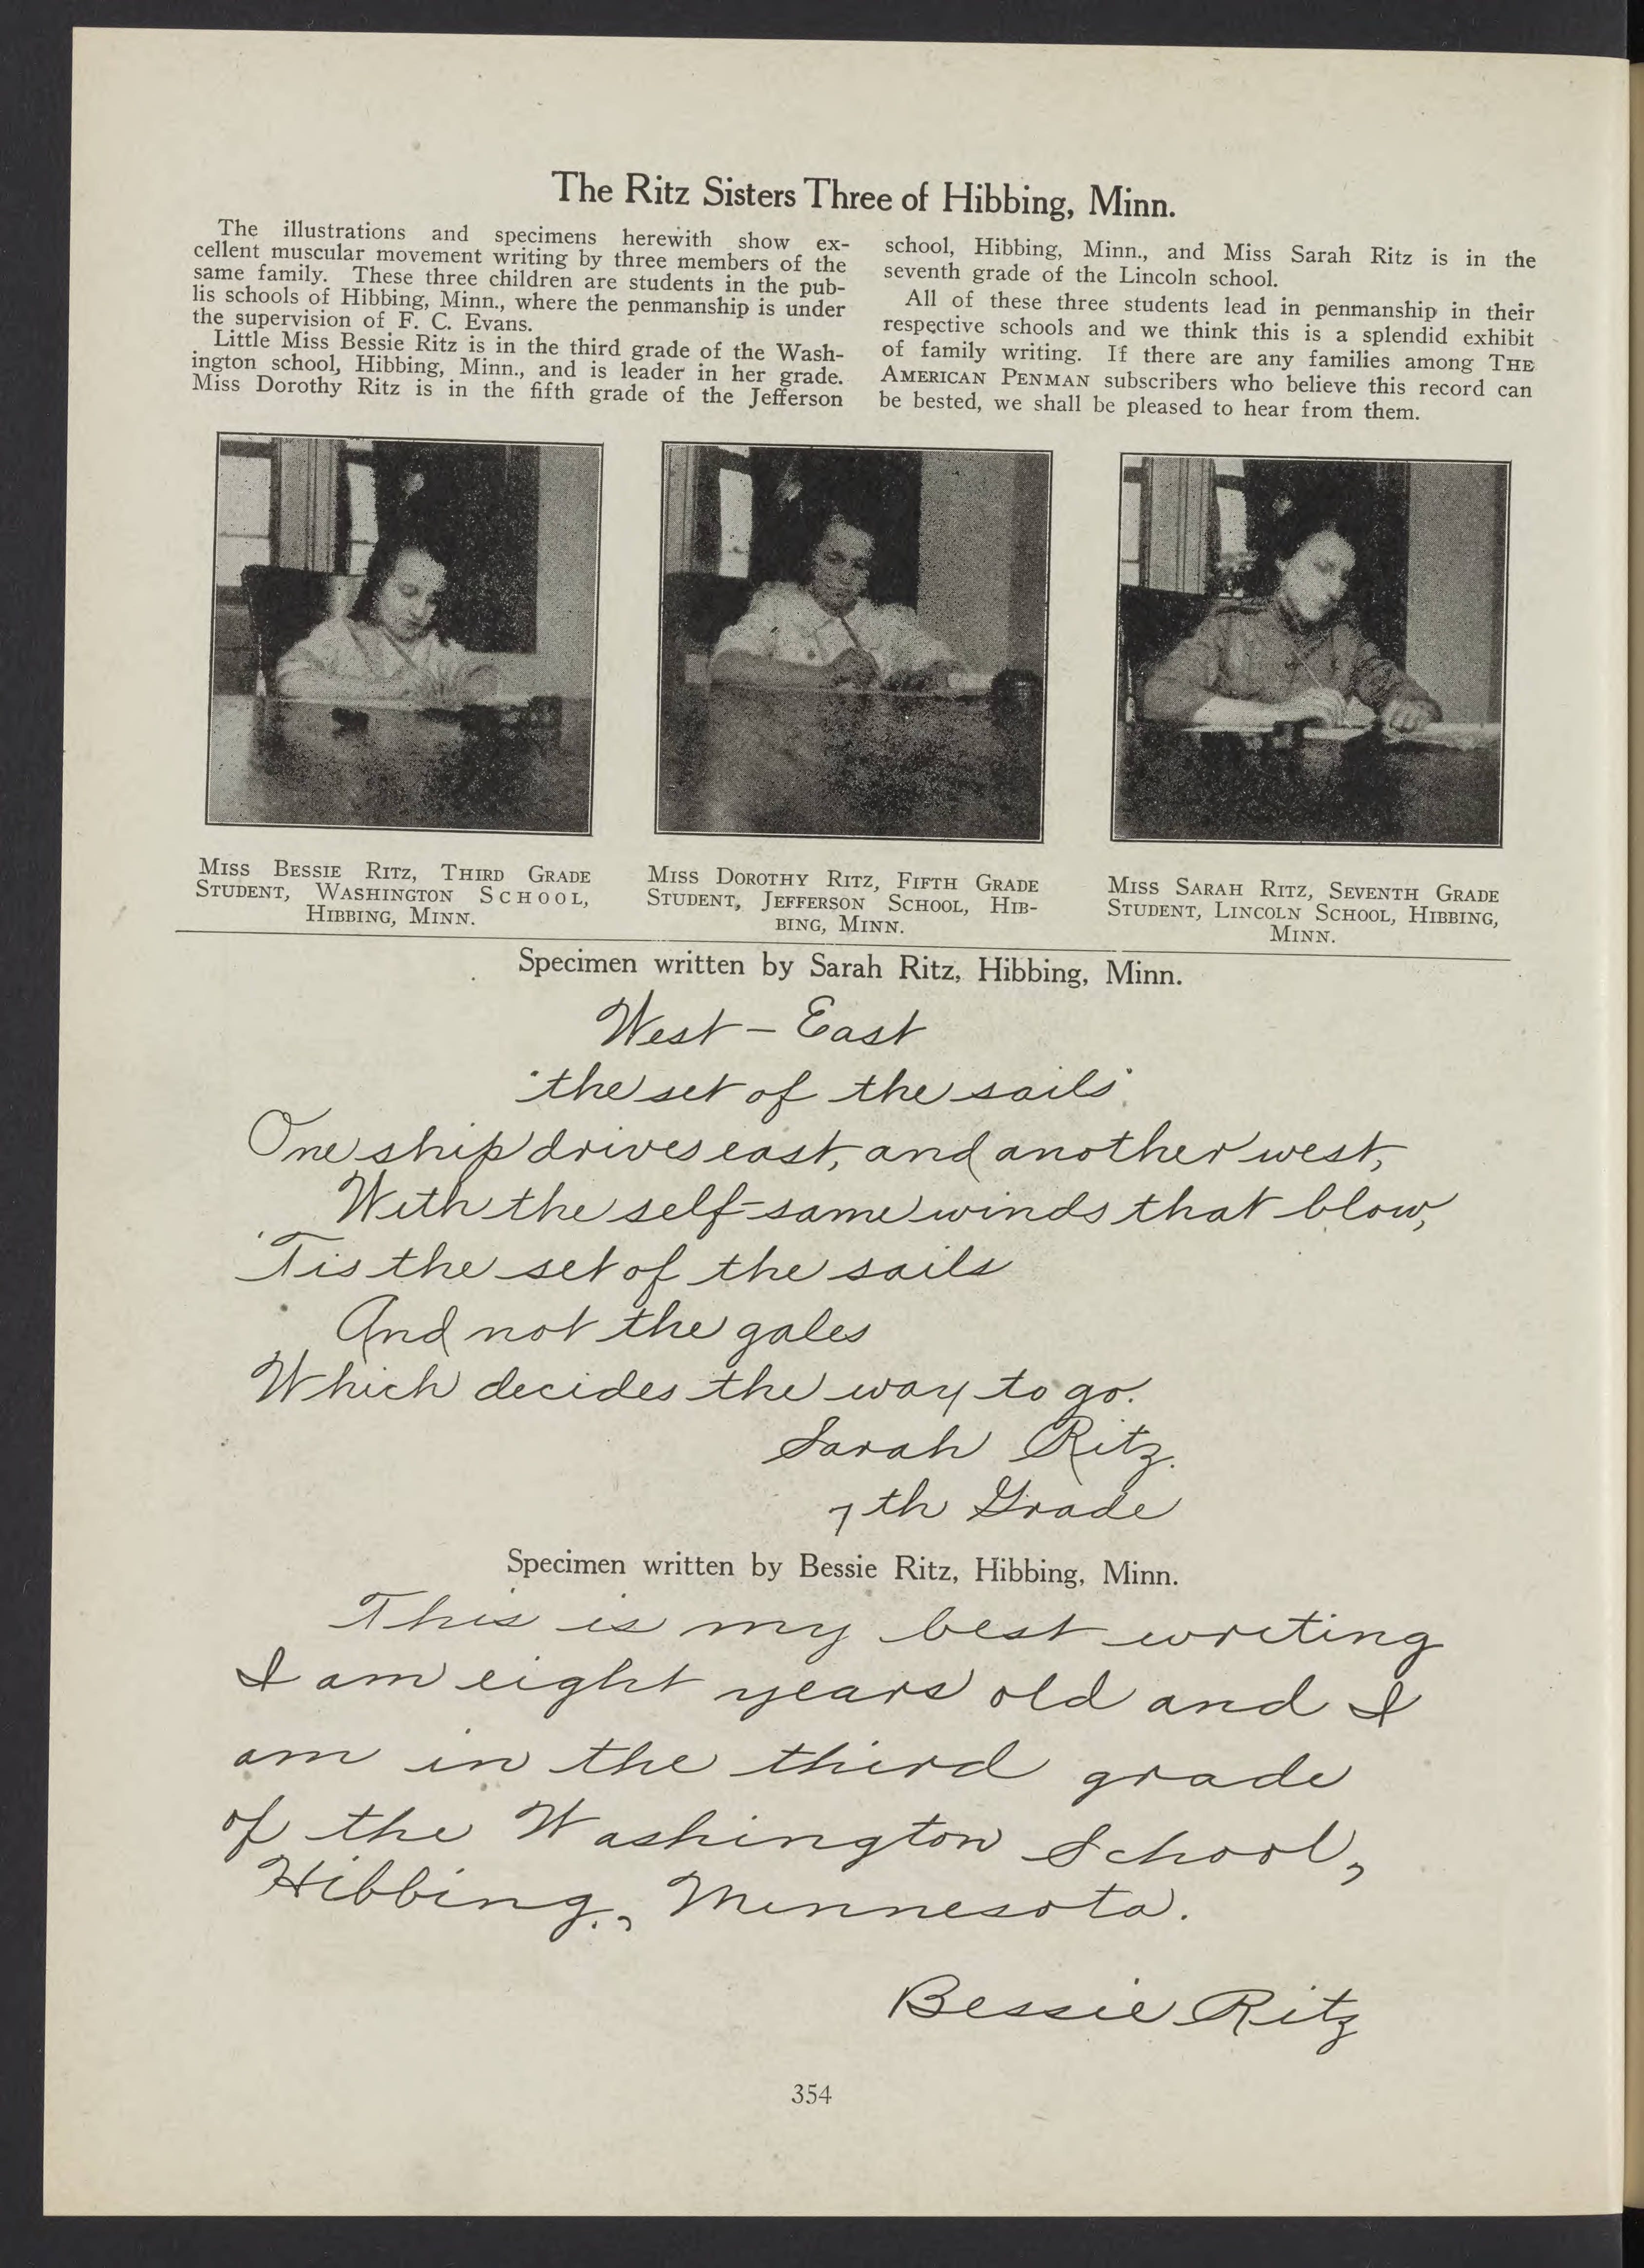 The Ritz Sisters Three of Hibbing, Minn.
The illustrations and specimens herewith show ex-
cellent muscular movement writing by three members of the
same family. These three children are students in the pub-
lis schools of Hibbing, Minn., where the penmanship is under
the supervision of F. C. Evans.
Little Miss Bessie Ritz is in the third grade of the Wash-
ington school, Hibbing, Minn., and is leader in her grade.
Miss Dorothy Ritz is in the fifth grade of the Jefferson
school, Hibbing, Minn., and Miss Sarah Ritz is in the
seventh grade of the Lincoln school.
All of these three students lead in penmanship in their
respective schools and we think this is a splendid exhibit
of family writing. If there are any families among THE
AMERICAN PENMAN subscribers who believe this record can
be bested, we shall be pleased to hear from them.
MISS BESSIE RITZ, THIRD GRADE
STUDENT, WASHINGTON SCHOOL,
HIBBING, MINN.
MISS DOROTHY RITZ, FIFTH GRADE
STUDENT, JEFFERSON SCHOOL, HIB-
BING, MINN.
MISS SARAH RITZ, SEVENTH GRADE
STUDENT, LINCOLN SCHOOL, HIBBING,
MINN.
Specimen written by Sarah Ritz, Hibbing, Minn.
West – East
"the set of the sails"
One ship drives east, and another west,
With the self-same winds that blow,
'Tis the set of the sails
And not the gales
Which decides the way to go.
Sarah Ritz.
7th Grade
Specimen written by Bessie Ritz, Hibbing, Minn.
This is my best writing
I am eight years old and I
am in the third grade
of the Washington School,
Hibbing., Minnesota.
Bessie Ritz
354